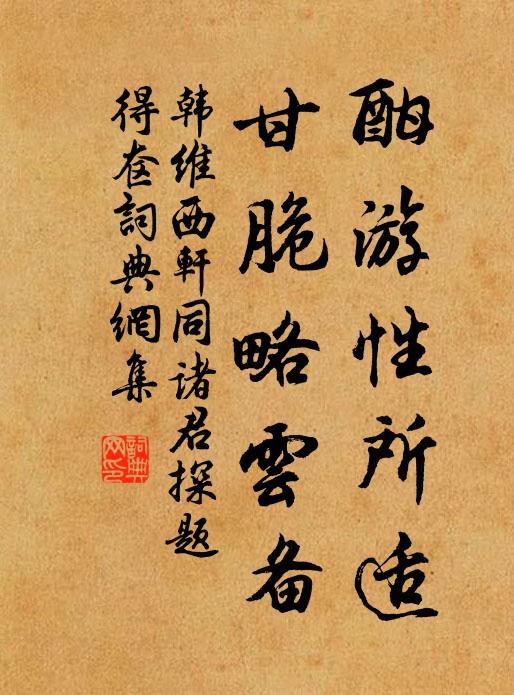 酣游性所适
甘脆略雲备
韩维西軒同诸君探题
得奁詞典網集
詞典网印